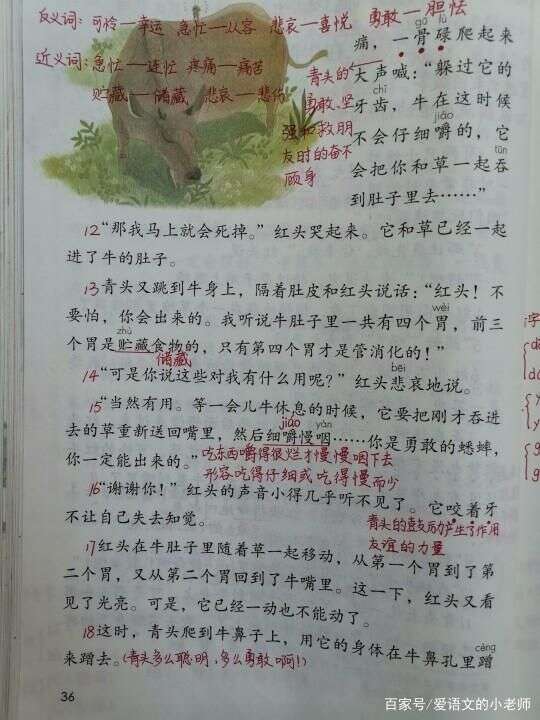 反义词：可怜—幸运 急忙—从容 悲哀—喜悦 勇敢—胆怯
近义词：急忙—连忙 疼痛—痛苦
贮藏—储藏 悲哀—悲伤
gū lu
痛，一骨碌爬起来
大声喊：“躲过它的
chǐ
牙齿，牛在这时候
jiáo
不会仔细嚼的，它
tūn
会把你和草一起吞
到肚子里去……”
青头的
勇敢、坚
强和救朋
友时的奋不
顾身
12“那我马上就会死掉。”红头哭起来。它和草已经一起
进了牛的肚子。
13青头又跳到牛身上，隔着肚皮和红头说话：“红头！不
wèi
要怕，你会出来的。我听说牛肚子里一共有四个胃，前三
zhù
个胃是贮藏食物的，只有第四个胃才是管消化的！”
储藏
bēi
14“可是你说这些对我有什么用呢？”红头悲哀地说。
15“当然有用。等一会儿牛休息的时候，它要把刚才吞进
jiáo yàn
去的草重新送回嘴里，然后细嚼慢咽……你是勇敢的蟋蟀，
你一定能出来的。”
吃东西嚼得很烂才慢慢咽下去
形容吃得仔细或吃得慢而少
16“谢谢你！”红头的声音小得几乎听不见了。它咬着牙
不让自己失去知觉。
青头的鼓励产生了作用
友谊的力量
17红头在牛肚子里随着草一起移动，从第一个胃到了第
二个胃，又从第二个胃回到了牛嘴里。这一下，红头又看
见了光亮。可是，它已经一动也不能动了。
18这时，青头爬到牛鼻子上，用它的身体在牛鼻孔里蹭
cèng
来蹭去。（青头多么聪明，多么勇敢啊！）
36
百家号/爱语文的小老师